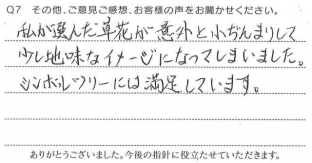 Q7 その他、ご意見ご感想、お客様の声をお聞かせください。
私が選んだ草花が意外と小ぢんまりして
少し地味なイメージになってしまいました。
シンボルツリーには満足しています。
ありがとうございました。今後の指針に役立たせていただきます。